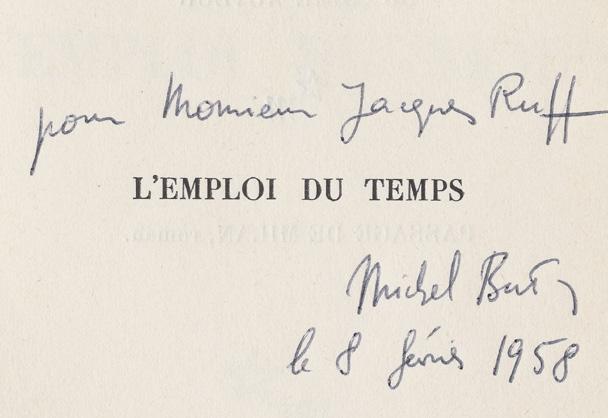 pour Monsieur Jacques Ruff
L'EMPLOI DU TEMPS
PASSAGE DE MILAN, roman.
Michel Butor
le 8 février 1958